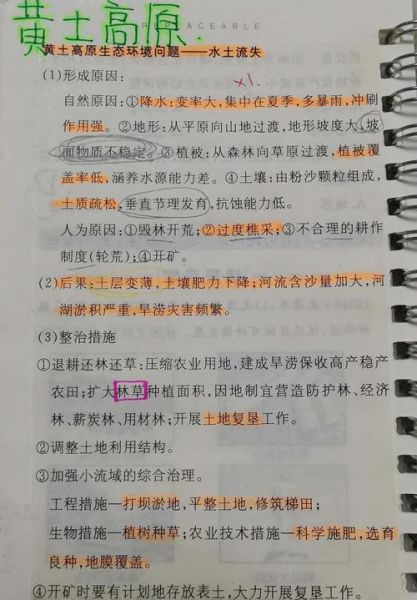 REPLACEABLE
黄土高原.
黄土高原生态环境问题——水土流失
(1)形成原因:
自然原因:①降水:变率大,集中在夏季,多暴雨,冲刷
作用强。②地形:从平原向山地过渡,地形坡度大,坡
面物质不稳定。③植被:从森林向草原过渡,植被覆
盖率低,涵养水源能力差。④土壤:由粉沙颗粒组成,
土质疏松,垂直节理发育,抗蚀能力低。
人为原因:①毁林开荒;②过度樵采;③不合理的耕作
制度(轮荒);④开矿。
(2)后果:土层变薄,土壤肥力下降;河流含沙量加大,河
湖淤积严重,旱涝灾害频繁。
(3)整治措施
①退耕还林还草:压缩农业用地,建成旱涝保收高产稳产
农田;扩大林草种植面积,因地制宜营造防护林、经济
林、薪炭林、用材林;开展土地复垦工作。
②调整土地利用结构。
③加强小流域的综合治理。
工程措施—打坝淤地,平整土地,修筑梯田;
生物措施—植树种草;农业技术措施—科学施肥,选育
良种,地膜覆盖。
④开矿时要有计划地存放表土,大力开展复垦工作。